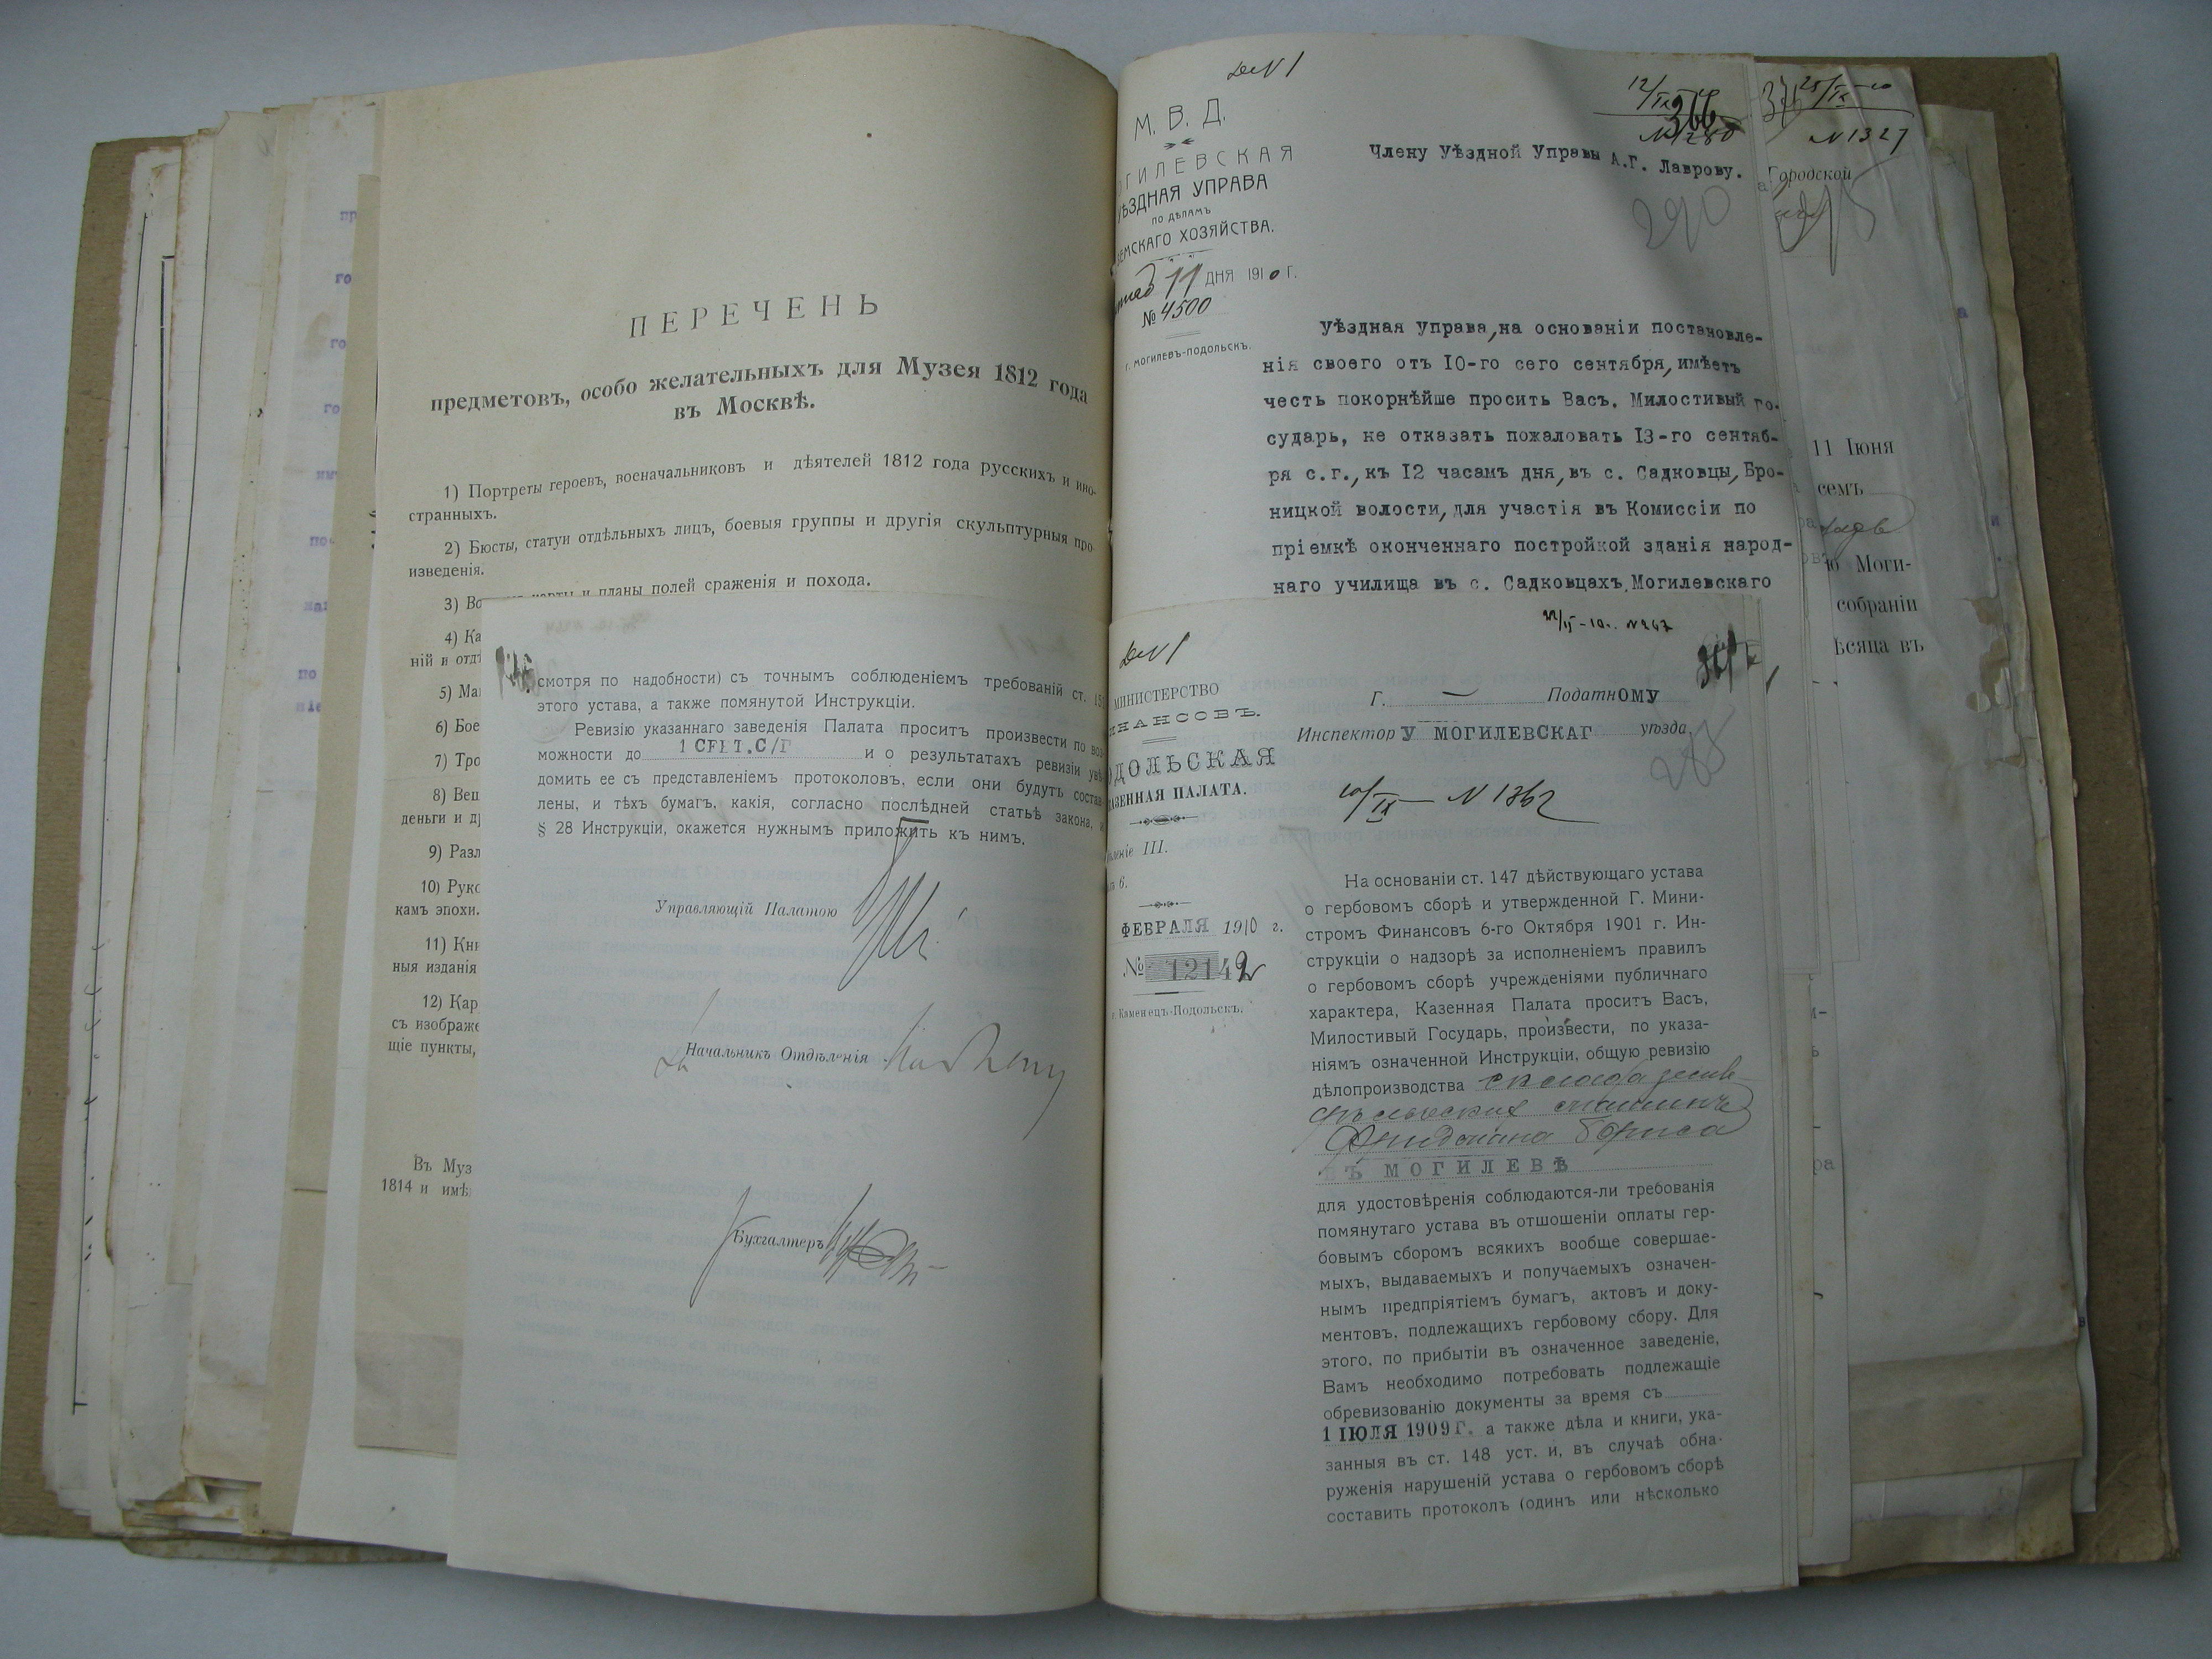 ПЕРЕЧЕНЬ
предметовъ, особо желательныхъ для Музея 1812 года
въ Москвѣ.
1) Портреты героевъ, военачальниковъ и дѣятелей 1812 года русскихъ и ино-
странныхъ.
2) Бюсты, статуи отдѣльныхъ лицъ, боевыя группы и другія скульптурныя про-
изведенія.
3) карты и планы полей сраженія и похода.
4) Ка
ній и отдѣ
5) Ма
6) Бое
7) Тро
8) Вещ
деньги и д
9) Разл
10) Руко
камъ эпохи.
11) Кни
ныя изданія
12) Кар
съ изображе
щіе пункты,
Въ Муз
1814 и имѣ
смотря по надобности) съ точнымъ соблюденіемъ требованій ст. 15
этого устава, а также помянутой Инструкціи.
Ревизію указаннаго заведенія Палата проситъ произвести по воз-
можности до 1 СЕНТ.С/Г и о результатахъ ревизіи увѣ-
домить ее съ представленіемъ протоколовъ, если они будутъ состав-
лены, и тѣхъ бумагъ, какія, согласно послѣдней статьѣ закона, и
§ 28 Инструкціи, окажется нужнымъ приложить къ нимъ.
Управляющій Палатою
Начальникъ Отдѣленія
Бухгалтеръ
М. В. Д.
ОГИЛЕВСКАЯ
УѢЗДНАЯ УПРАВА
ПО ДѢЛАМЪ
ЗЕМСКАГО ХОЗЯЙСТВА.
11 ДНЯ 1910 Г.
№ 4500
Г. МОГИЛЕВЪ-ПОДОЛЬСКЪ.
12/IX
366
№ 1280
Члену Уѣздной Управы А.Г. Лаврову.
290
Уѣздная управа, на основаніи постановле-
нія своего отъ 10-го сего сентября, имѣетъ
честь покорнѣйше просить Васъ, Милостивый го-
сударь, не отказать пожаловать 13-го сентяб-
ря с.г., къ 12 часамъ дня, въ с. Садковцы, Бро-
ницкой волости, для участія въ Комиссіи по
пріемкѣ оконченнаго постройкой зданія народ-
наго училища въ с. Садковцахъ, Могилевскаго
22/II-10. №247
МИНИСТЕРСТВО
ИНАНСОВЪ.
ОДОЛЬСКАЯ
КАЗЕННАЯ ПАЛАТА.
леніе III.
6.
ФЕВРАЛЯ 1910 г.
№ 12142
г. Каменецъ-Подольскъ.
Г. Податному
Инспектору МОГИЛЕВСКАГ уѣзда.
288
10/IX № 1362
На основаніи ст. 147 дѣйствующаго устава
о гербовомъ сборѣ и утвержденной Г. Мини-
стромъ Финансовъ 6-го Октября 1901 г. Ин-
струкціи о надзорѣ за исполненіемъ правилъ
о гербовомъ сборѣ учрежденіями публичнаго
характера, Казенная Палата проситъ Васъ,
Милостивый Государь, произвести, по указа-
ніямъ означенной Инструкціи, общую ревизію
дѣлопроизводства склада земле-
дѣльческихъ машинъ
Фридмана Бориса
ВЪ МОГИЛЕВѢ
для удостовѣренія соблюдаются-ли требованія
помянутаго устава въ отшошеніи оплаты гер-
бовымъ сборомъ всякихъ вообще совершае-
мыхъ, выдаваемыхъ и получаемыхъ означен-
нымъ предпріятіемъ бумагъ, актовъ и доку-
ментовъ, подлежащихъ гербовому сбору. Для
этого, по прибытіи въ означенное заведеніе,
Вамъ необходимо потребовать подлежащіе
обревизованію документы за время съ
1 ІЮЛЯ 1909 Г. а также дѣла и книги, ука-
занныя въ ст. 148 уст. и, въ случаѣ обна-
руженія нарушеній устава о гербовомъ сборѣ
составить протоколъ (одинъ или нѣсколько
376
25/IX-10
№ 1327
Городской
11 Іюня
семъ
Моги-
собраніи
ѣсяца въ